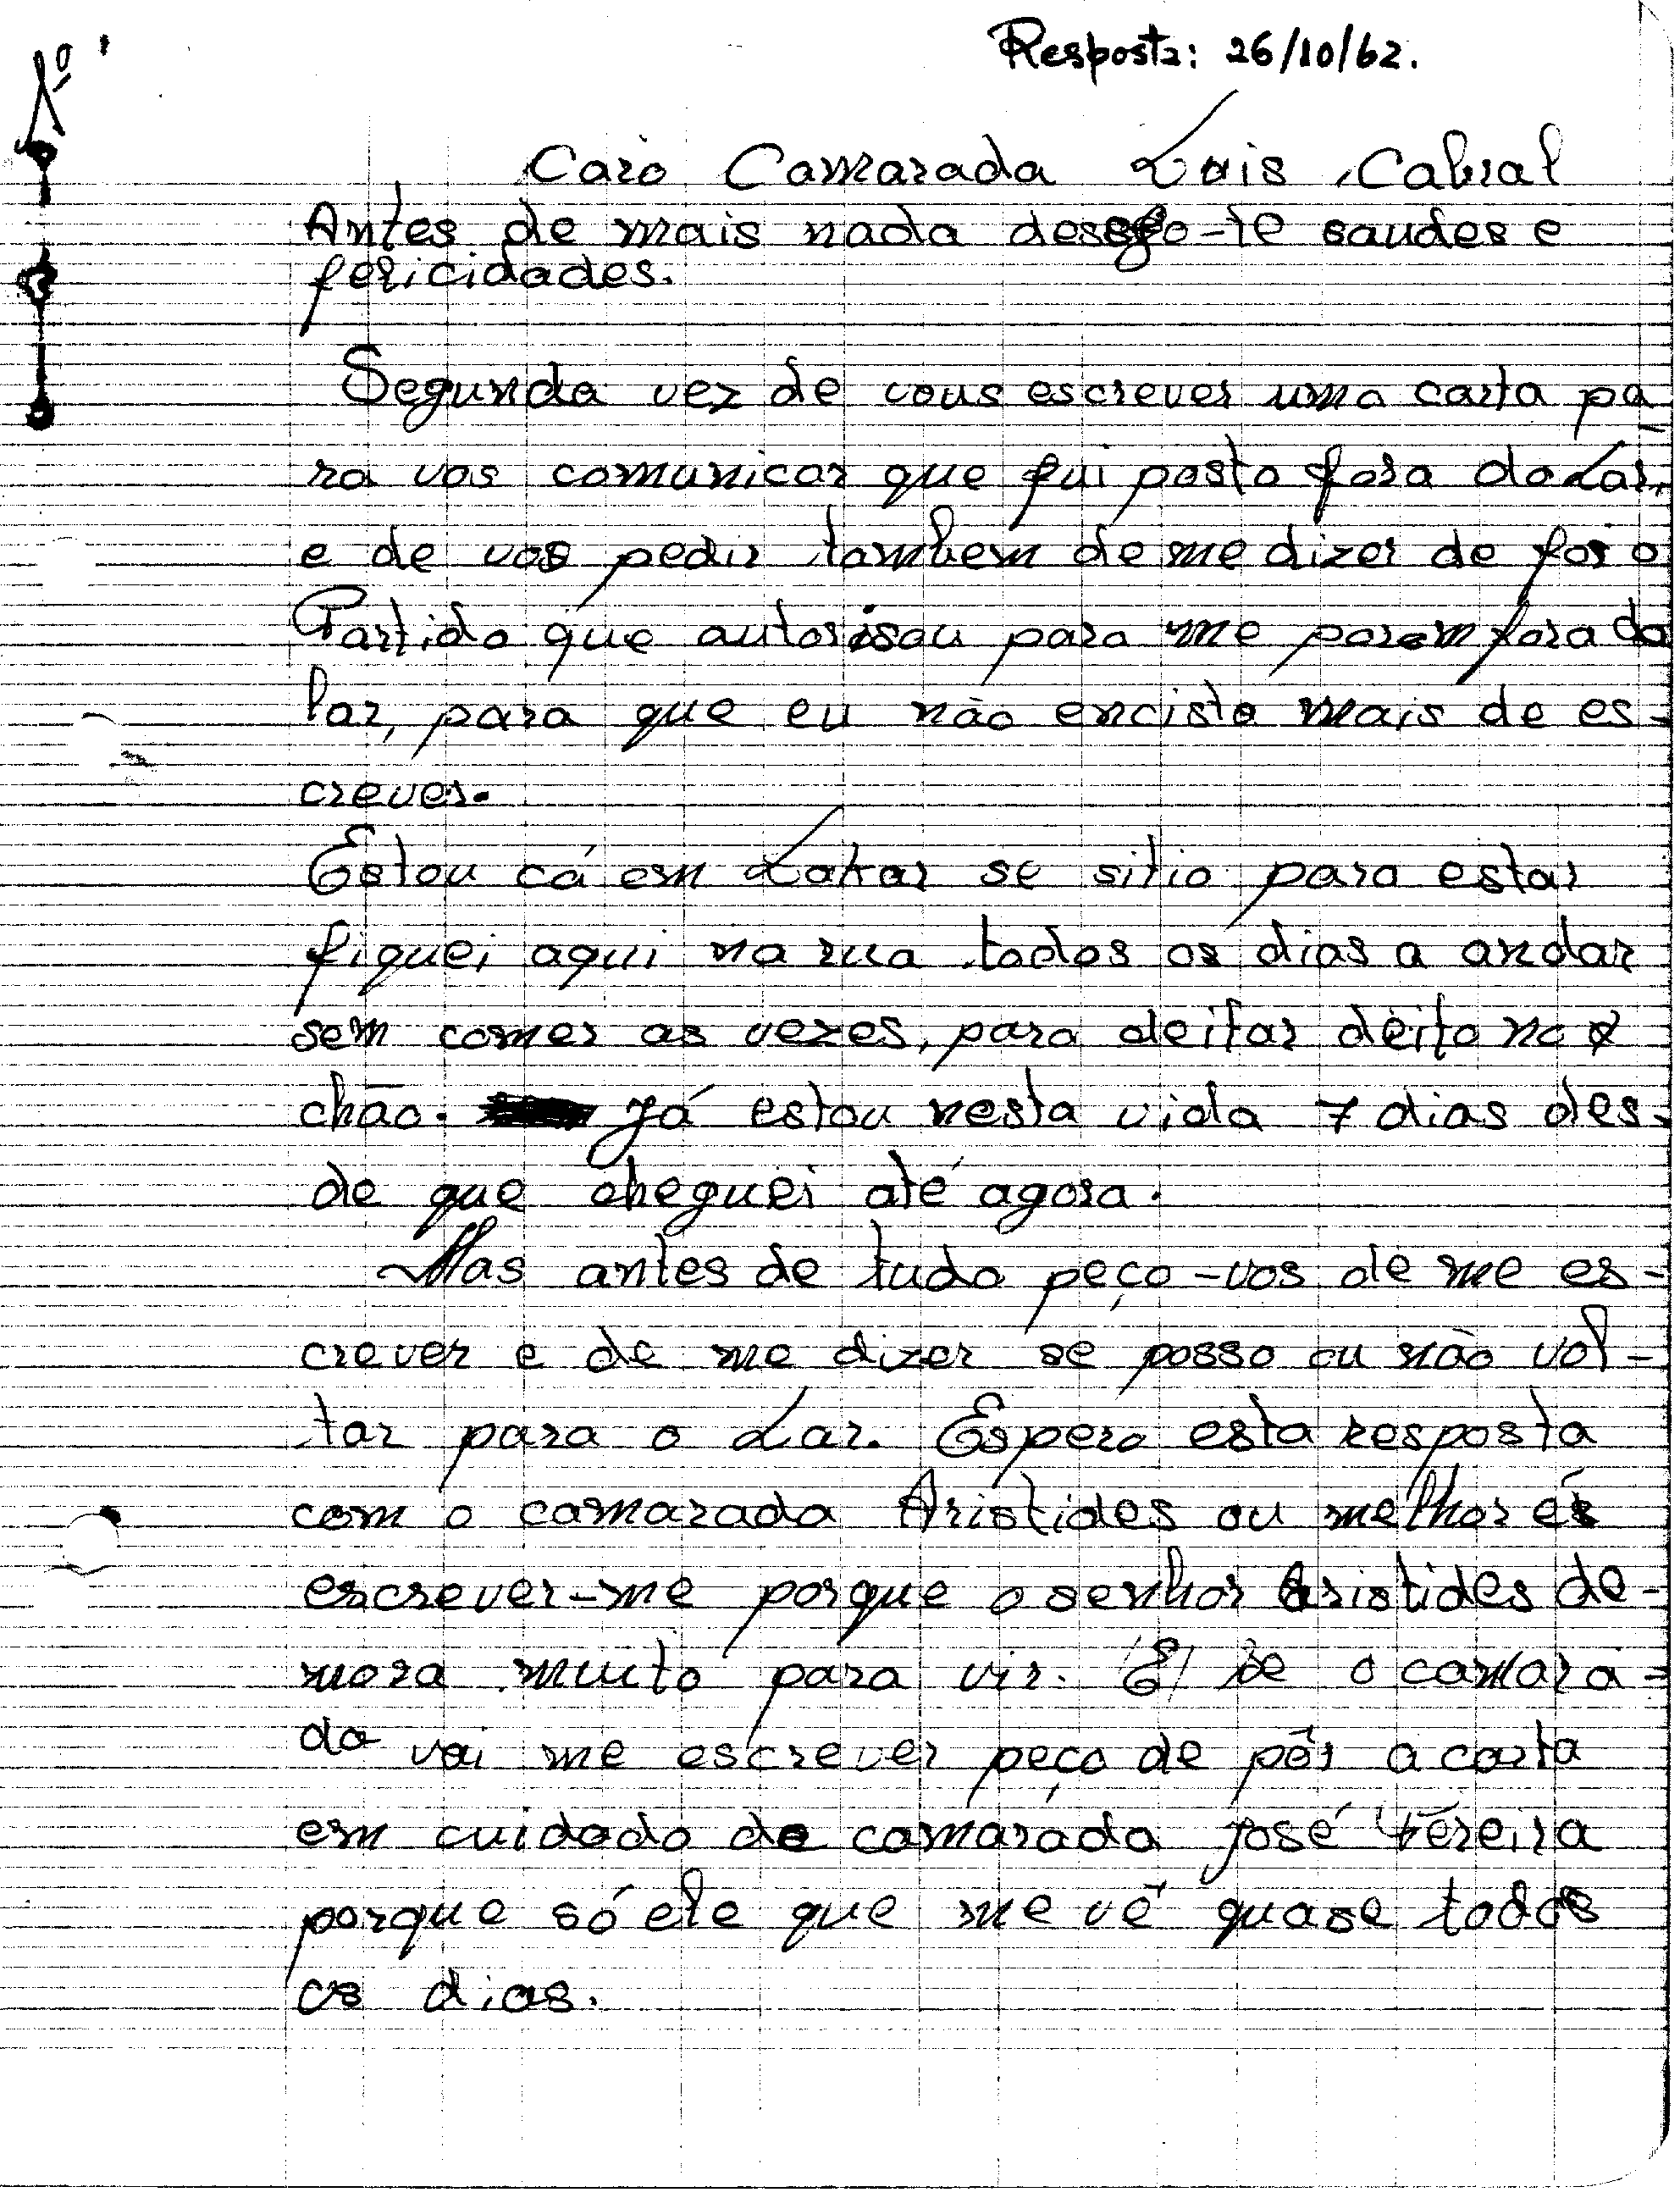 Resposta: 26/10/62.
Caro Camarada Luis Cabral
Antes de mais nada desejo-te saudes e
felicidades.
Segunda vez de vous escrever uma carta pa
ra vos comunicar que fui posto fora do Lar,
e de vos pedir tambem de me dizer de foi o
Partido que autorisou para me porem fora do
lar, para que eu não encisto mais de es-
crever.
Estou cá em Dakar se sitio para estar
fiquei aqui na rua todos os dias a andar
sem comer as vezes, para deitar deito no
chão. Já estou nesta vida 7 dias des-
de que cheguei até agora.
Mas antes de tudo peço-vos de me es-
crever e de me dizer se posso ou não vol-
tar para o Lar. Espero esta resposta
com o camarada Aristides ou melhor
escrever-me porque o senhor Aristides de-
mora muito para vir. E se o camara-
da vai me escrever peço de pôr a carta
em cuidado de camarada José Péreira
porque só ele que me vê quase todos
os dias.